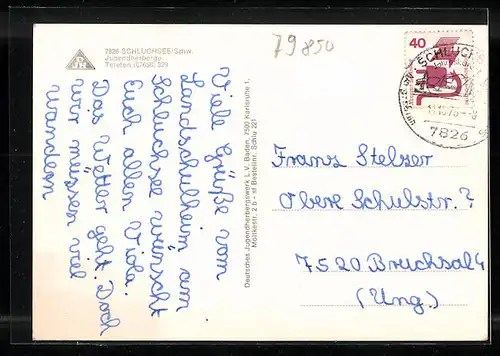 7826 SCHLUCHSEE/Schw.
Jugendherberge
Telefon (07656) 329
79850
Viele Grüße vom
Landschulheim am
Schluchsee wünscht
Euch allen Viola.
Das Wetter geht. Doch
wir müssen viel
wandern
Deutsches Jugendherbergswerk L.V. Baden, 7500 Karlsruhe 1,
Moltkestr. 2 b - Bestellnr. Schlu 221
40
SCHLUCH
7826
Franz Stelzer
Obere Schulstr. 7
7520 Bruchsal 4
(Ung.)